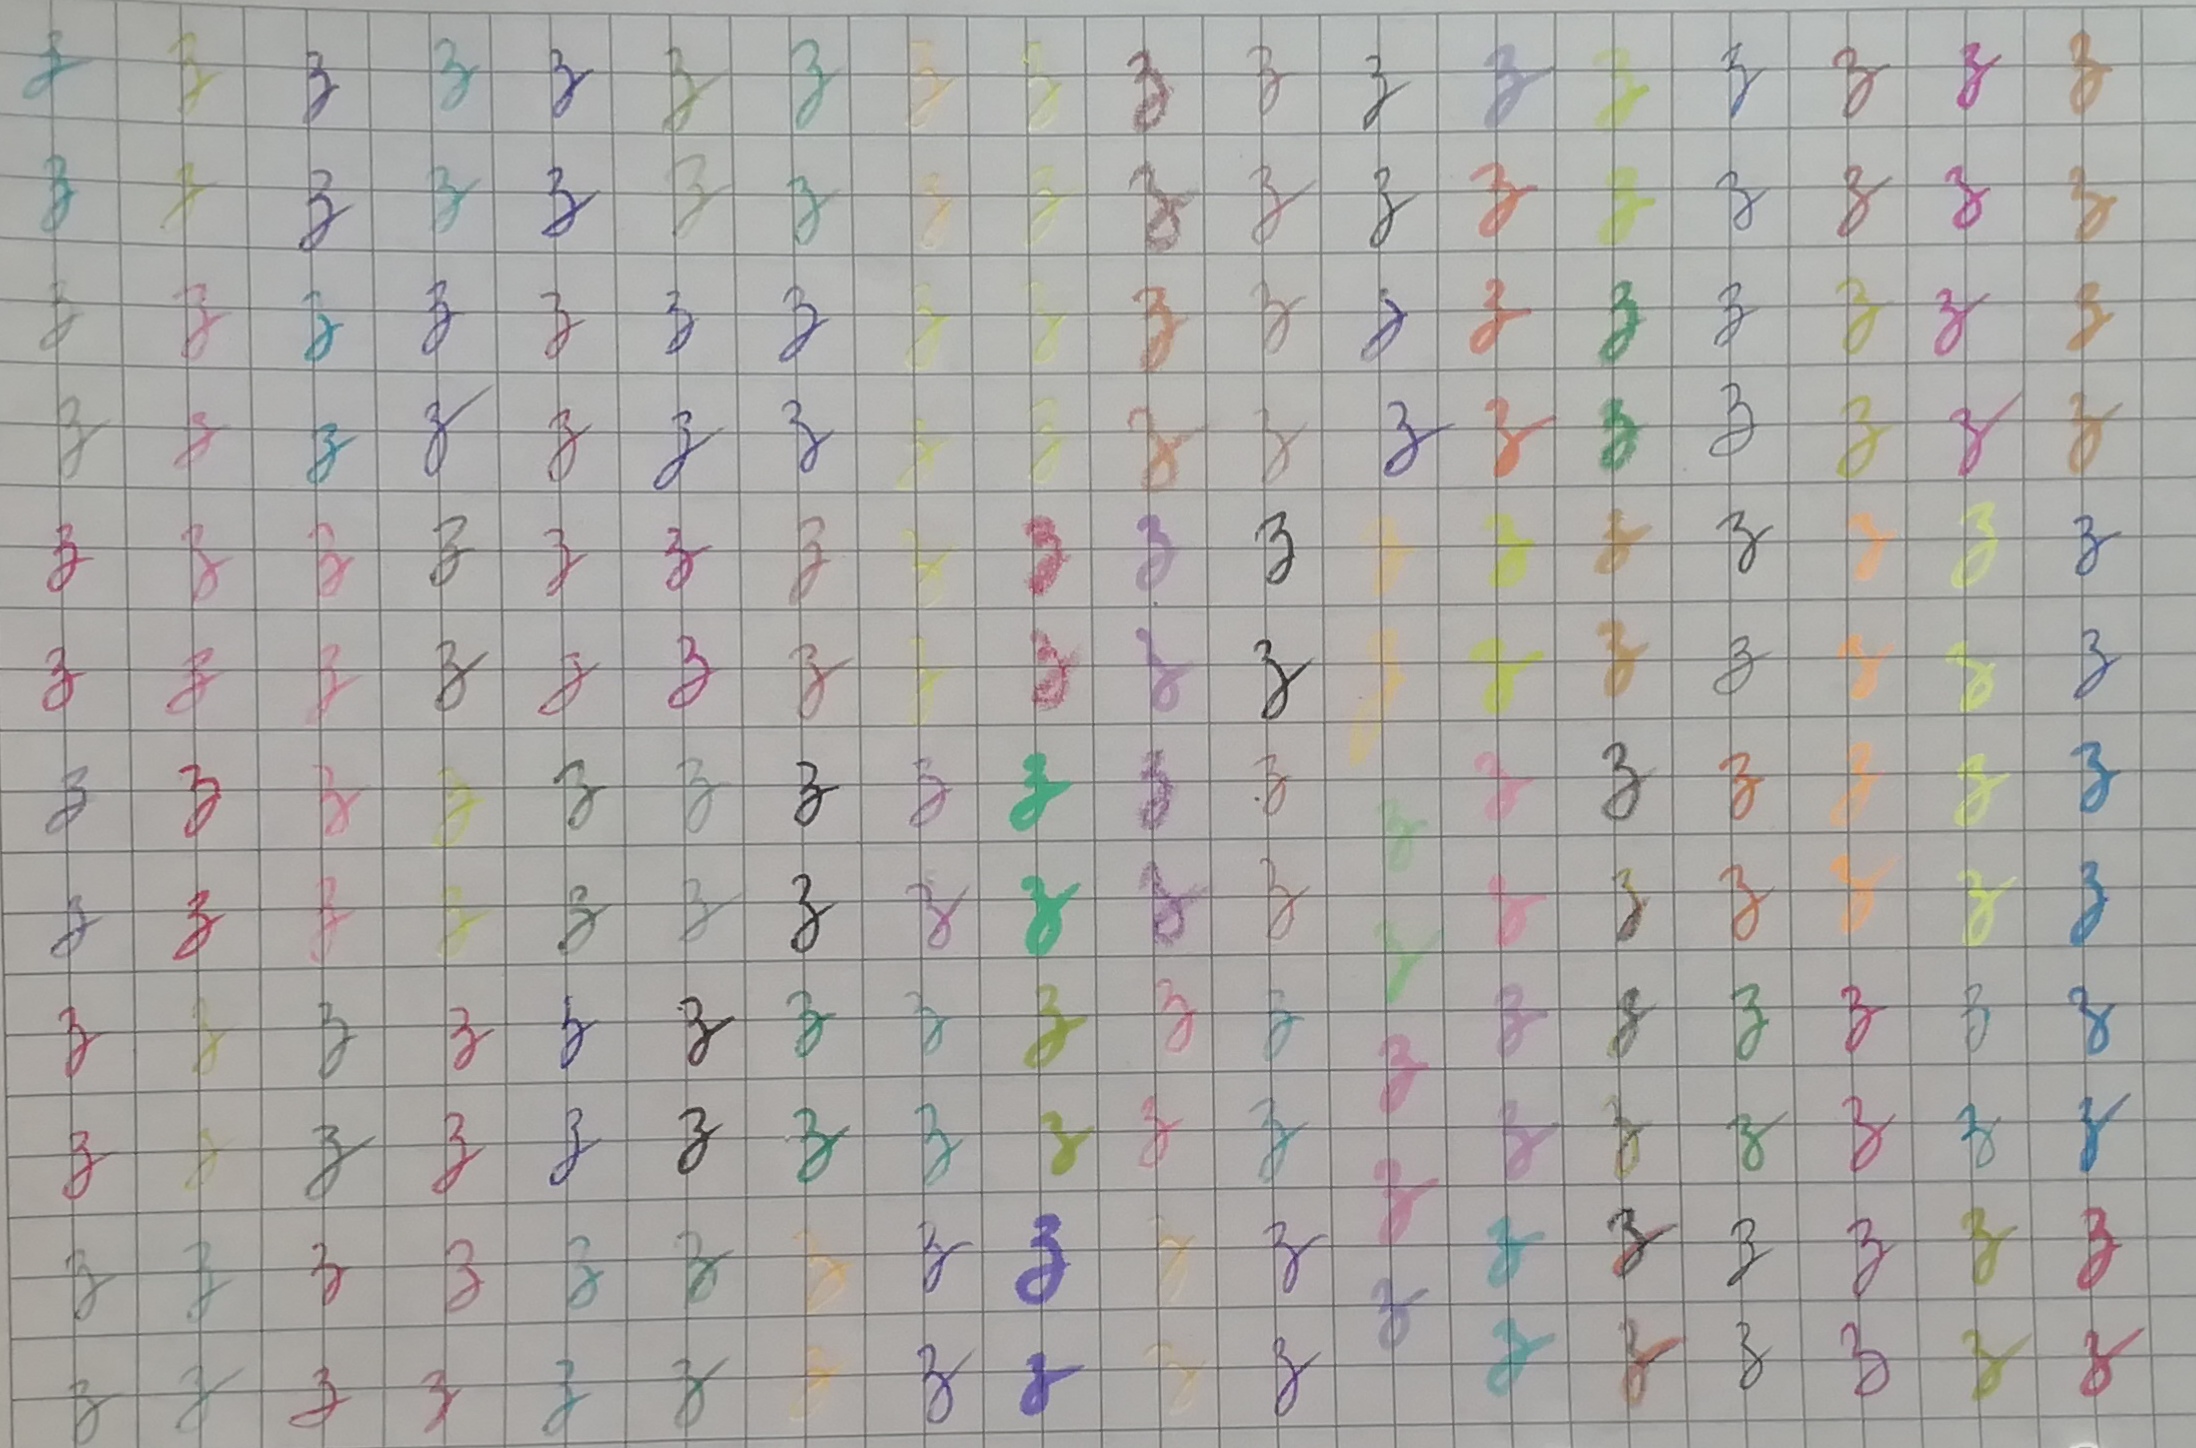 z z z z z z z z z z z z z z z z z z
z z z z z z z z z z z z z z z z z z
z z z z z z z z z z z z z z z z z z
z z z z z z z z z z z z z z z z z z
z z z z z z z z z z z z z z z z z z
z z z z z z z z z z z z z z z z z z
z z z z z z z z z z z z z z z z z z
z z z z z z z z z z z z z z z z z z
z z z z z z z z z z z z z z z z z z
z z z z z z z z z z z z z z z z z z
z z z z z z z z z z z z z z z z z z
z z z z z z z z z z z z z z z z z